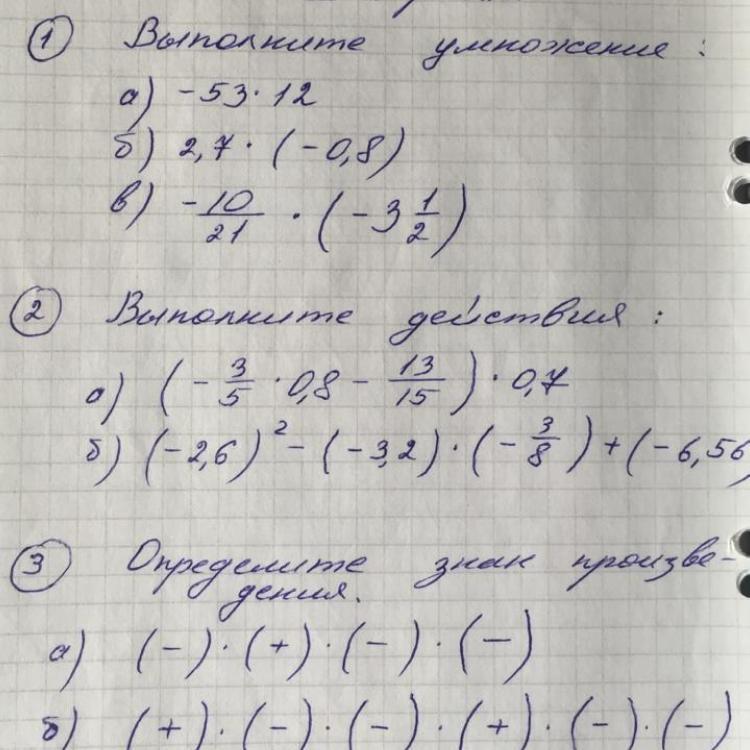 1 Выполните умножение:
а) -53·12
б) 2,7·(-0,8)
в) -10/21·(-3 1/2)
2 Выполните действия:
а) (-3/5·0,8-13/15)·0,7
б) (-2,6)²-(-3,2)·(-3/8)+(-6,56
3 Определите знак произве-
дения.
а) (-)·(+)·(-)·(-)
б) (+)·(-)·(-)·(+)·(-)·(-)